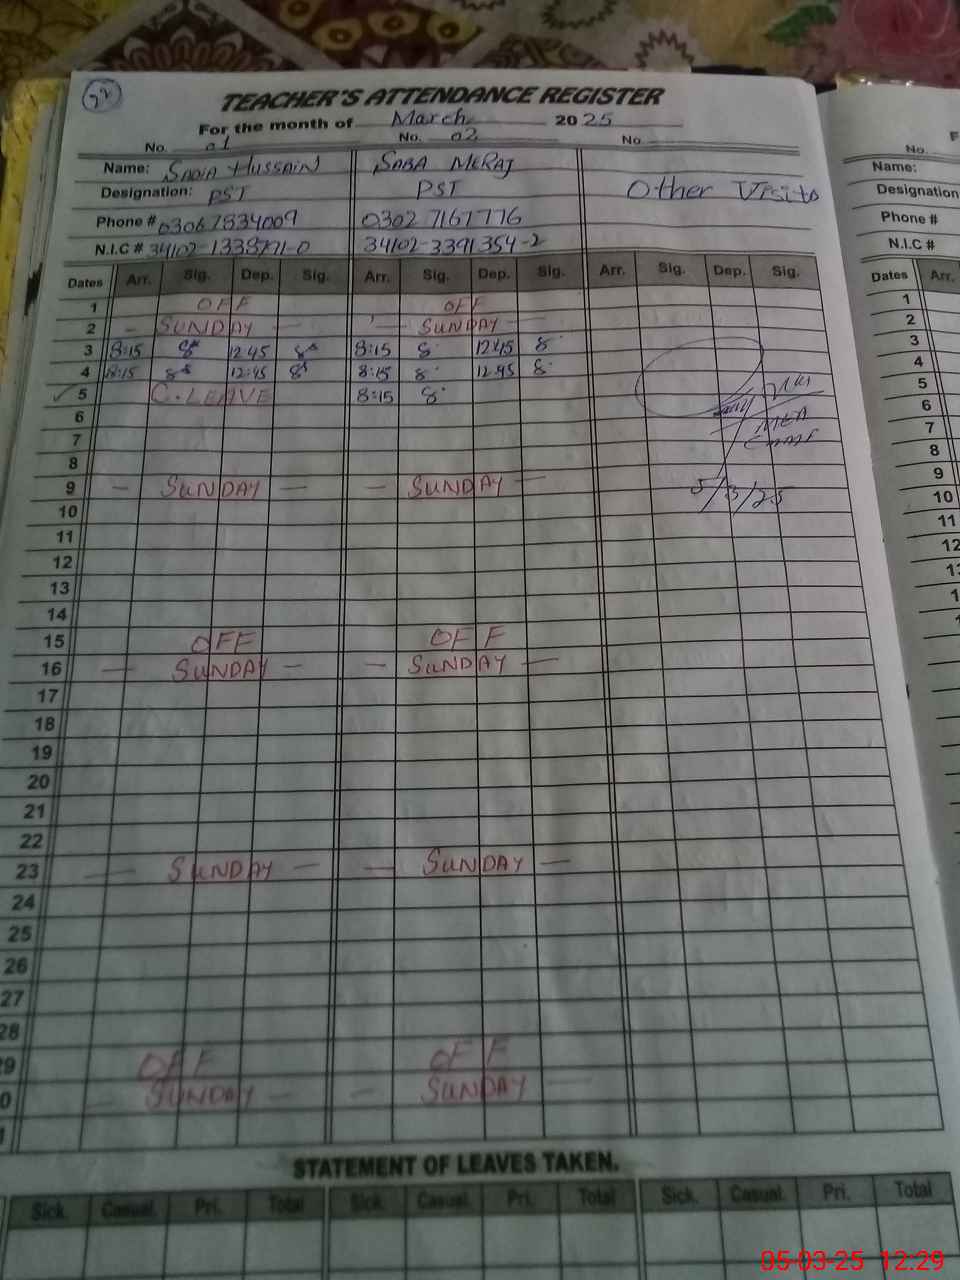 22
TEACHER'S ATTENDANCE REGISTER
For the month of March 2025
No. 01 No. 02 No.
Name: SADIA HUSSAIN SABA MERAJ
Designation: PST PST Other Visits
Phone # 03067834009 0302 7161776
N.I.C # 34102-1338771-0 34102-3391354-2
Dates Arr. Sig. Dep. Sig. Arr. Sig. Dep. Sig. Arr. Sig. Dep. Sig.
1 OFF OFF
2 — SUNDAY — — SUNDAY —
3 8:15 12:45 8:15 12:45
4 8:15 12:45 8:15 12:45
✓ 5 C.LEAVE 8:15
6
7 MEA
8
9 — SUNDAY — — SUNDAY — 5/3/25
10
11
12
13
14
15 OFF OFF
16 — SUNDAY — — SUNDAY —
17
18
19
20
21
22
23 — SUNDAY — — SUNDAY —
24
25
26
27
28
9 OFF OFF
0 — SUNDAY — — SUNDAY —
1
STATEMENT OF LEAVES TAKEN.
Sick. Casual. Pri. Total Sick. Casual. Pri. Total Sick. Casual. Pri. Total
F
No.
Name:
Designation
Phone #
N.I.C #
Dates Arr.
1
2
3
4
5
6
7
8
9
10
11
12
05-03-25 12:29